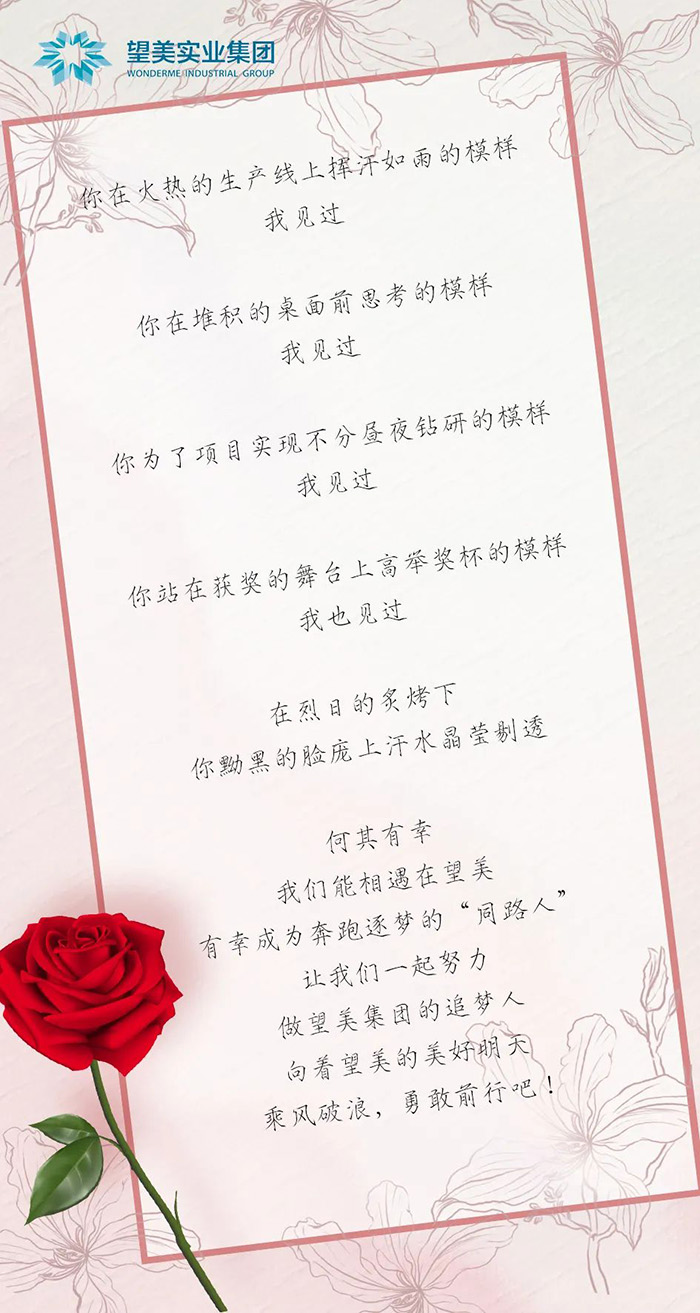 望美实业集团
WONDERME INDUSTRIAL GROUP
你在火热的生产线上挥汗如雨的模样
我见过
你在堆积的桌面前思考的模样
我见过
你为了项目实现不分昼夜钻研的模样
我见过
你站在获奖的舞台上高举奖杯的模样
我也见过
在烈日的炙烤下
你黝黑的脸庞上汗水晶莹剔透
何其有幸
我们能相遇在望美
有幸成为奔跑逐梦的“同路人”
让我们一起努力
做望美集团的追梦人
向着望美的美好明天
乘风破浪，勇敢前行吧！